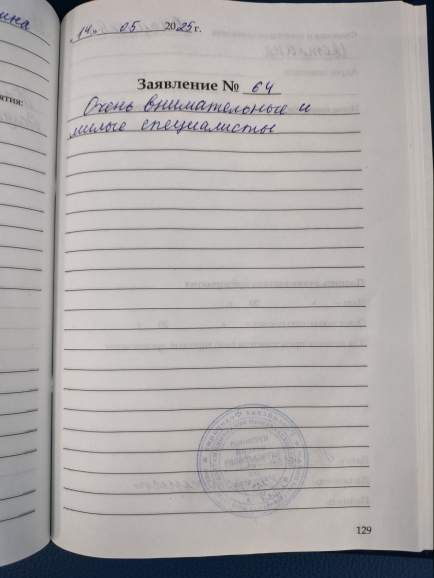 ина
ятия:
„14„ 05 2025г.
Заявление № 64
Очень внимательные и
милые специалисты
129